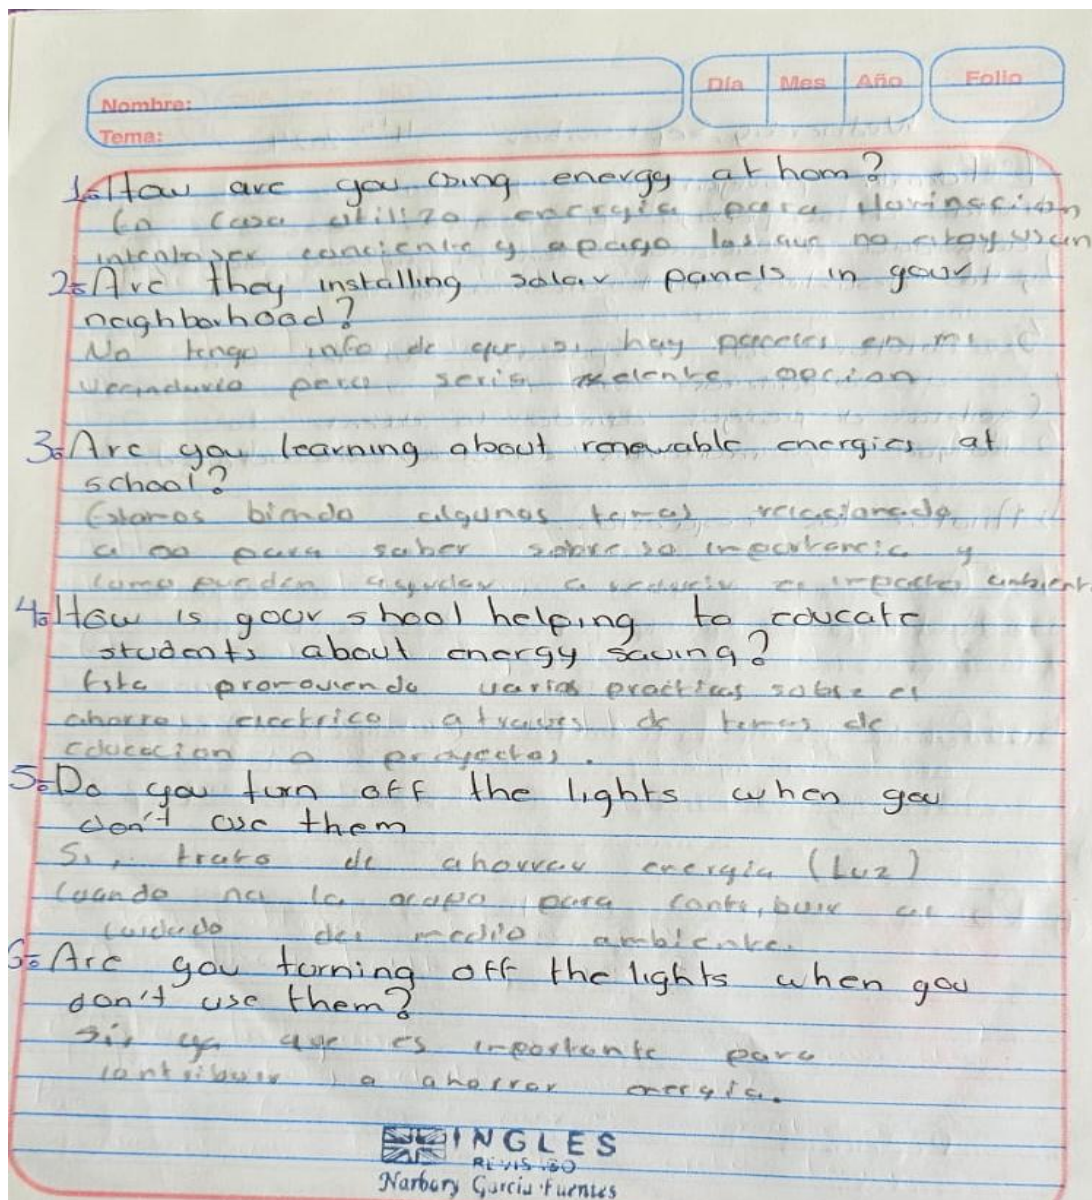 Nombre:
Tema:
Día Mes Año Folio
1.- How are you using energy at hom?
En casa utilizo energia para iluminacion
intento ser conciente y apago las que no estoy usan
2.- Are they installing solar panels in your
neighborhood?
No tengo info de que si hay paneles en mi
vecindario pero seria exelente opcion
3.- Are you learning about renewable energies at
school?
Estamos biendo algunos temas relacionado
para saber sobre su importancia y
como pueden ayudar a reducir el impacto ambient
4.- How is your shool helping to educate
students about energy saving?
Esta promoviendo varias practicas sobre el
ahorro electrico atraves de temas de
educacion o proyectos.
5.- Do you turn off the lights when you
don't use them
Si, trato de ahorrar energia (Luz)
cuando no la ocupo para contribuir al
cuidado del medio ambiente.
6.- Are you turning off the lights when you
don't use them?
Si, ya que es importante para
contribuir a ahorrar energia.
INGLES
REVISADO
Narbory Garcia Fuentes